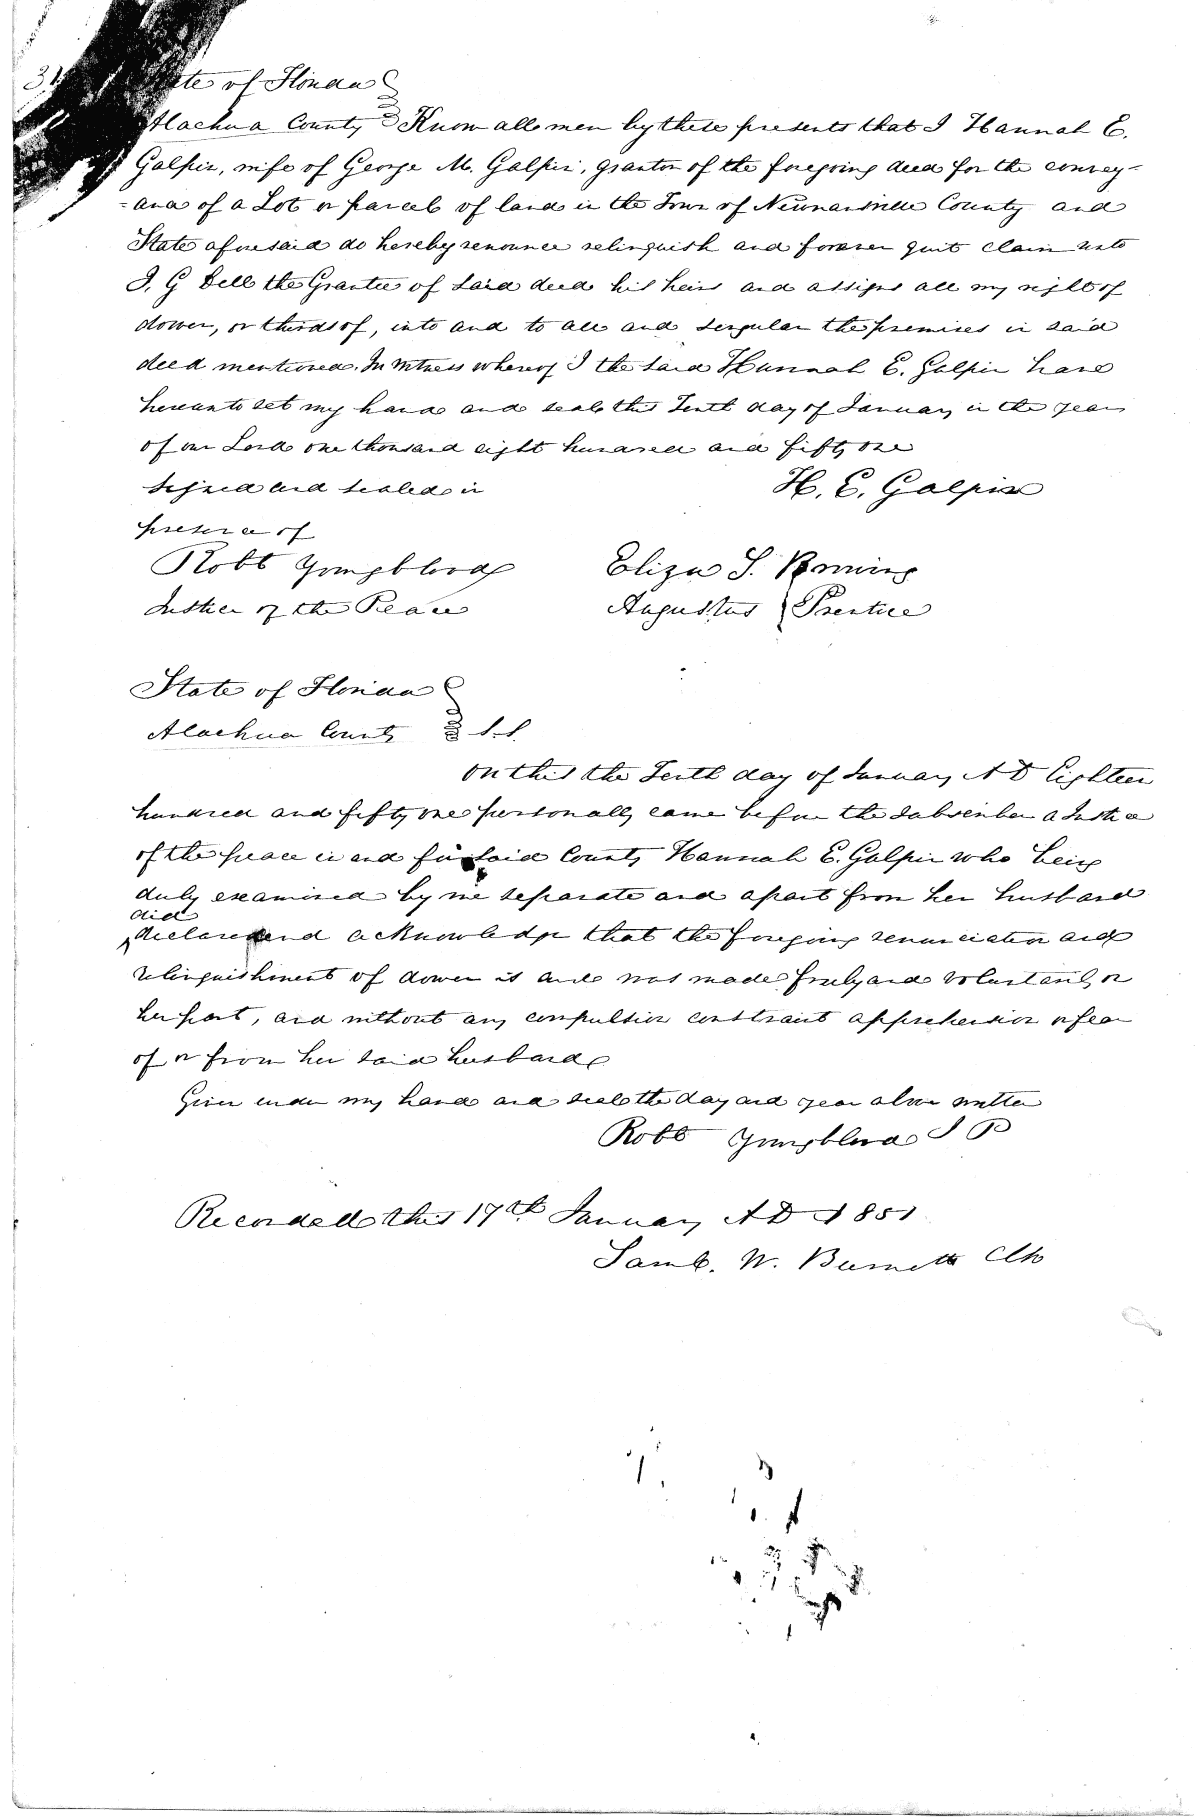 State of Florida
Alachua County Know all men by these presents that I Hannah E.
Galpin, wife of George M. Galpin, grantor of the foregoing deed for the convey-
-ance of a Lot or parcel of land in the Town of Newnansville County and
State aforesaid do hereby renounce relinquish and forever quit claim unto
J. G Dell the Grantee of said deed his heirs and assigns all my right of
dower, or thirds of, into and to all and singular the premises in said
deed mentioned. In Witness whereof I the said Hannah E. Galpin have
hereunto set my hand and seal this Tenth day of January in the year
of our Lord one thousand eight hundred and fifty one
Signed and sealed in
H. E. Galpin
presence of
Robt Youngblood
Eliza S.
Justice of the Peace
Augustus Prentice
State of Florida
Alachua County S.S.
On this the Tenth day of January A D Eighteen
hundred and fifty one personally came before the Subscriber a Justice
of the peace in and for said County Hannah E. Galpin who being
duly examined by me separate and apart from her husband
did
declare and acknowledge that the foregoing renunciation and
relinquishment of dower is and was made freely and voluntarily on
her part, and without any compulsion constraint apprehension or fear
of or from her said husband
Given under my hand and seal the day and year above written
Robt Youngblood J P
Recorded this 17th January A D 1851
Saml. W. Burnett Clk